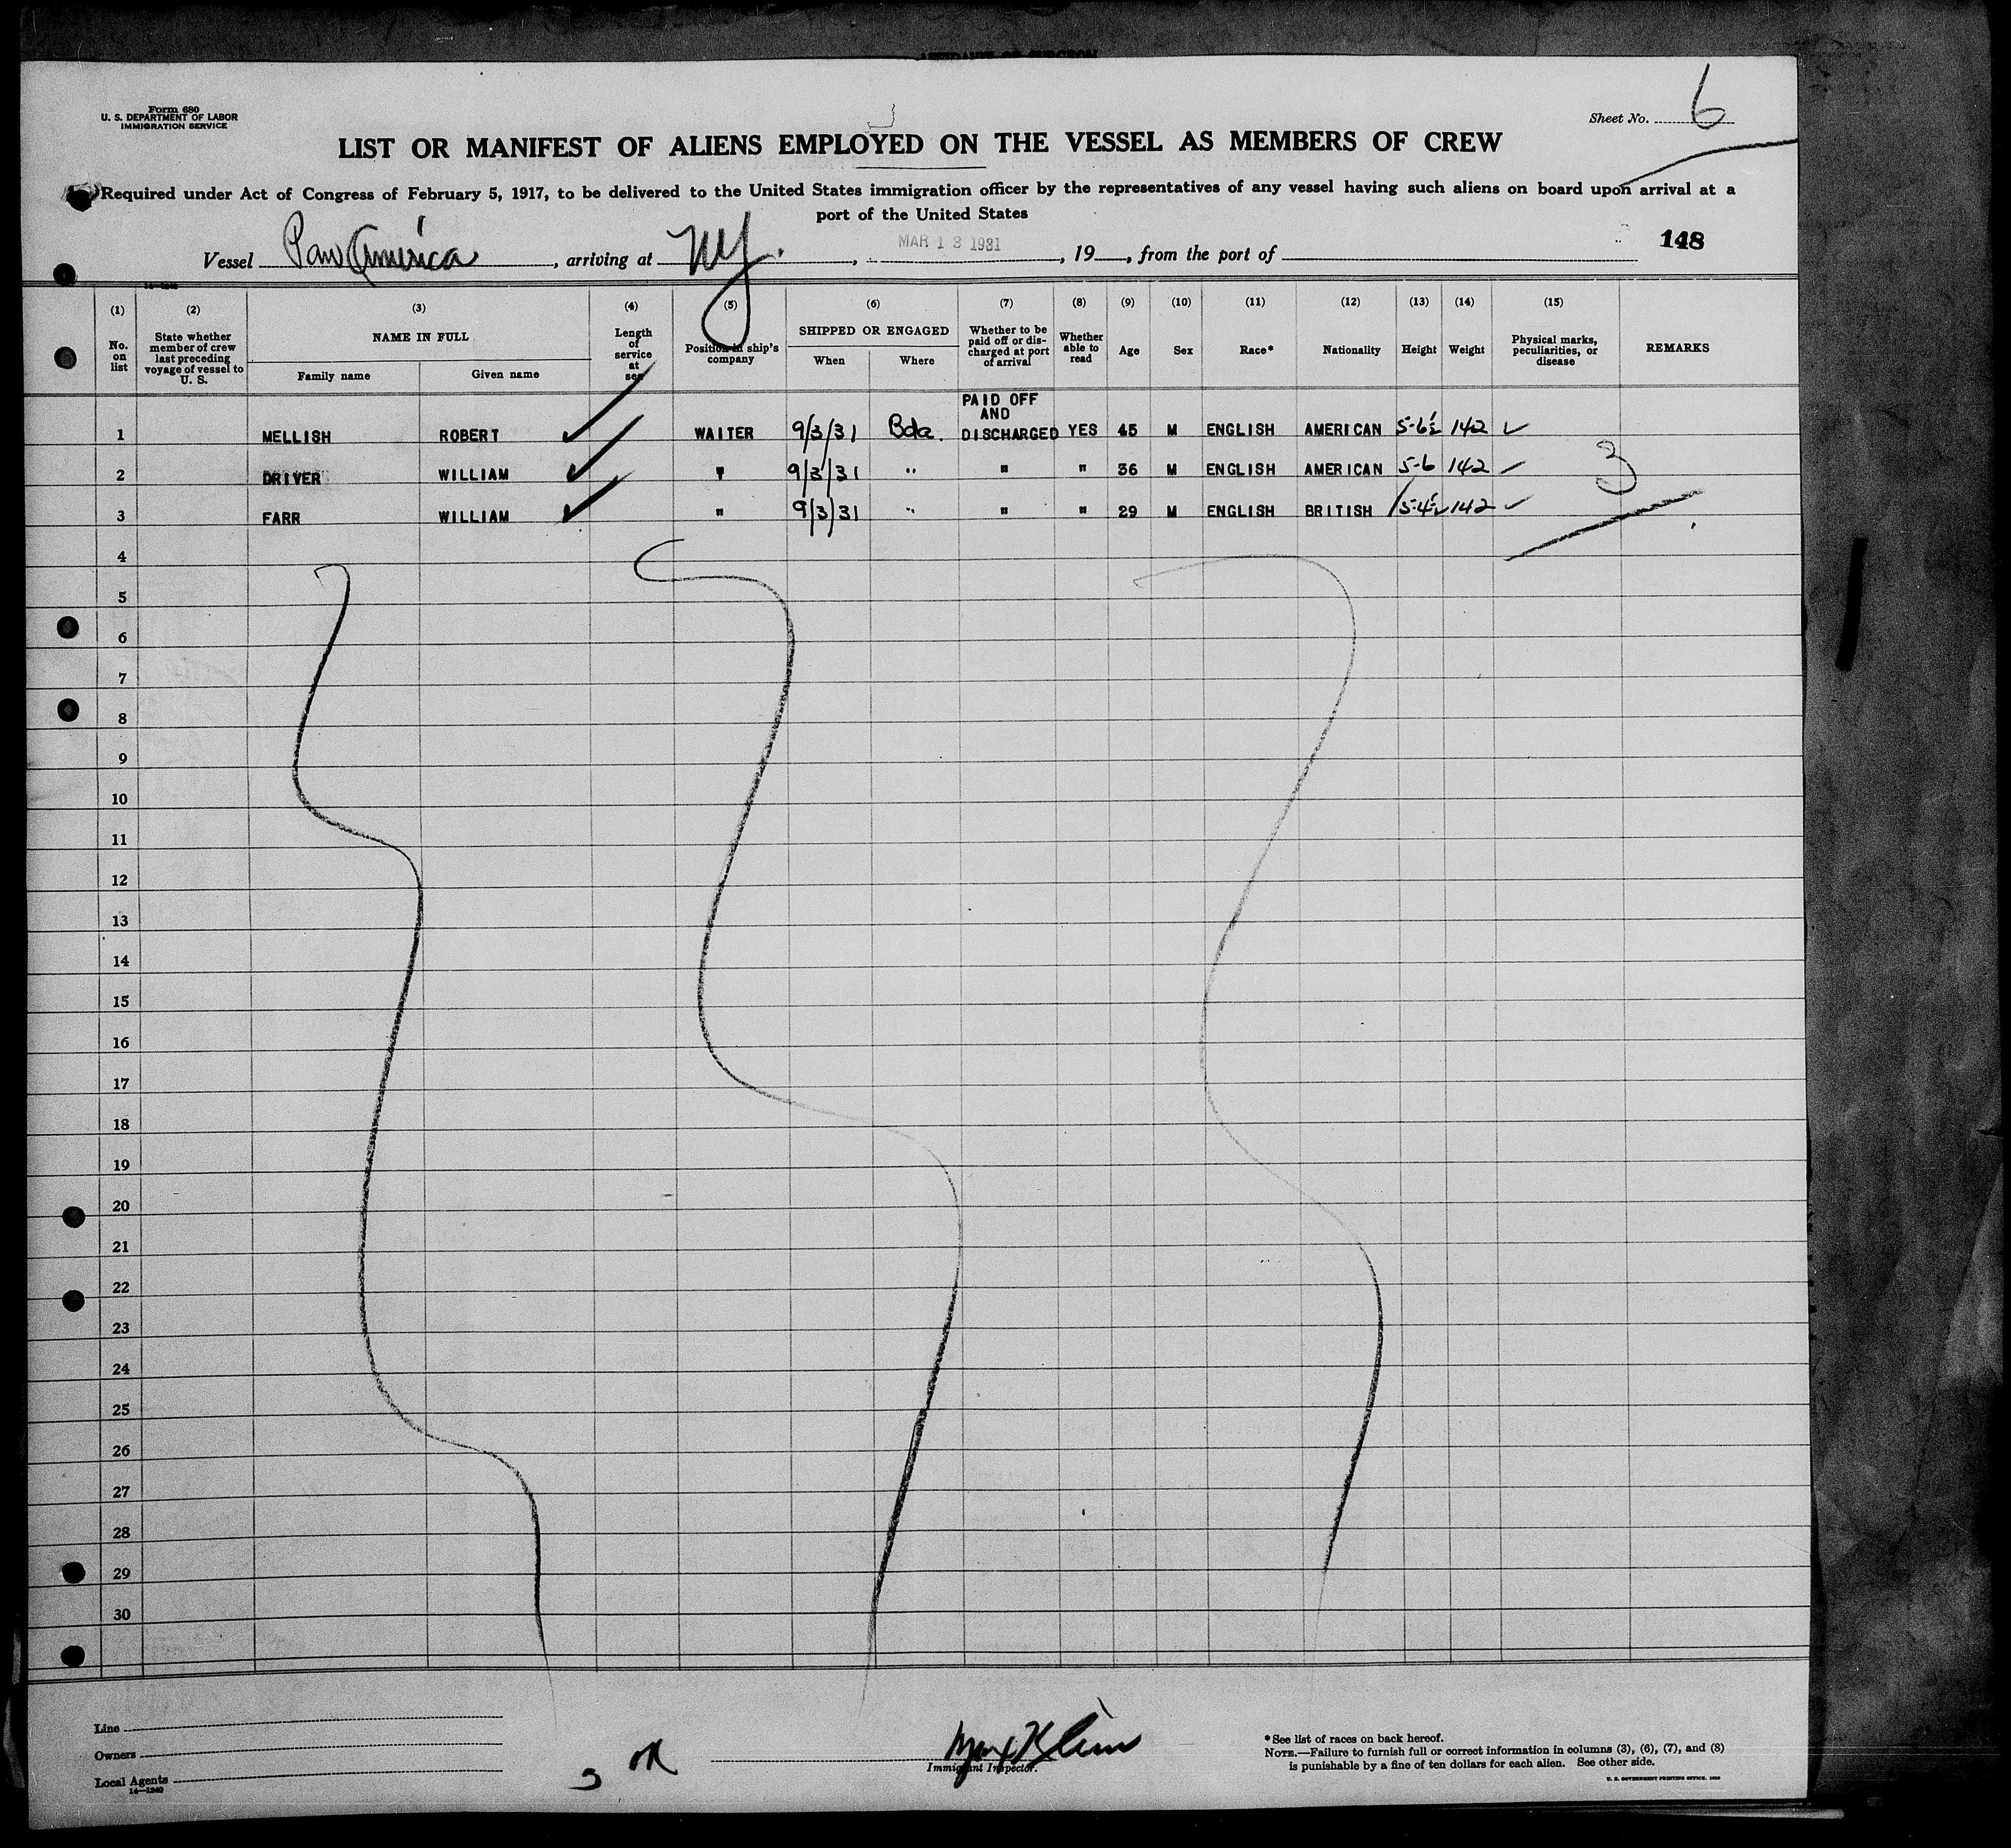 Form 680
U. S. DEPARTMENT OF LABOR
IMMIGRATION SERVICE
Sheet No. 6
LIST OR MANIFEST OF ALIENS EMPLOYED ON THE VESSEL AS MEMBERS OF CREW
Required under Act of Congress of February 5, 1917, to be delivered to the United States immigration officer by the representatives of any vessel having such aliens on board upon arrival at a
port of the United States
148
Vessel Pan America, arriving at NY., MAR 13 1931, 19, from the port of
(1) (2) (3) (4) (5) (6) (7) (8) (9) (10) (11) (12) (13) (14) (15)
No. on list
State whether member of crew last preceding voyage of vessel to U. S.
NAME IN FULL
Family name Given name
Length of service at sea
Position in ship's company
SHIPPED OR ENGAGED
When Where
Whether to be paid off or discharged at port of arrival
Whether able to read
Age Sex Race* Nationality Height Weight
Physical marks, peculiarities, or disease
REMARKS
1 MELLISH ROBERT WAITER 9/3/31 Bda. PAID OFF AND DISCHARGED YES 45 M ENGLISH AMERICAN 5-6½ 142 ✓
2 DRIVER WILLIAM " 9/3/31 " " " 36 M ENGLISH AMERICAN 5-6 142 ✓
3 FARR WILLIAM " 9/3/31 " " " 29 M ENGLISH BRITISH 5-4½ 142 ✓
3
4
5
6
7
8
9
10
11
12
13
14
15
16
17
18
19
20
21
22
23
24
25
26
27
28
29
30
Line
Owners
Local Agents
14—1240
3 OK
Max Klein
Immigrant Inspector.
* See list of races on back hereof.
NOTE.—Failure to furnish full or correct information in columns (3), (6), (7), and (8)
is punishable by a fine of ten dollars for each alien. See other side.